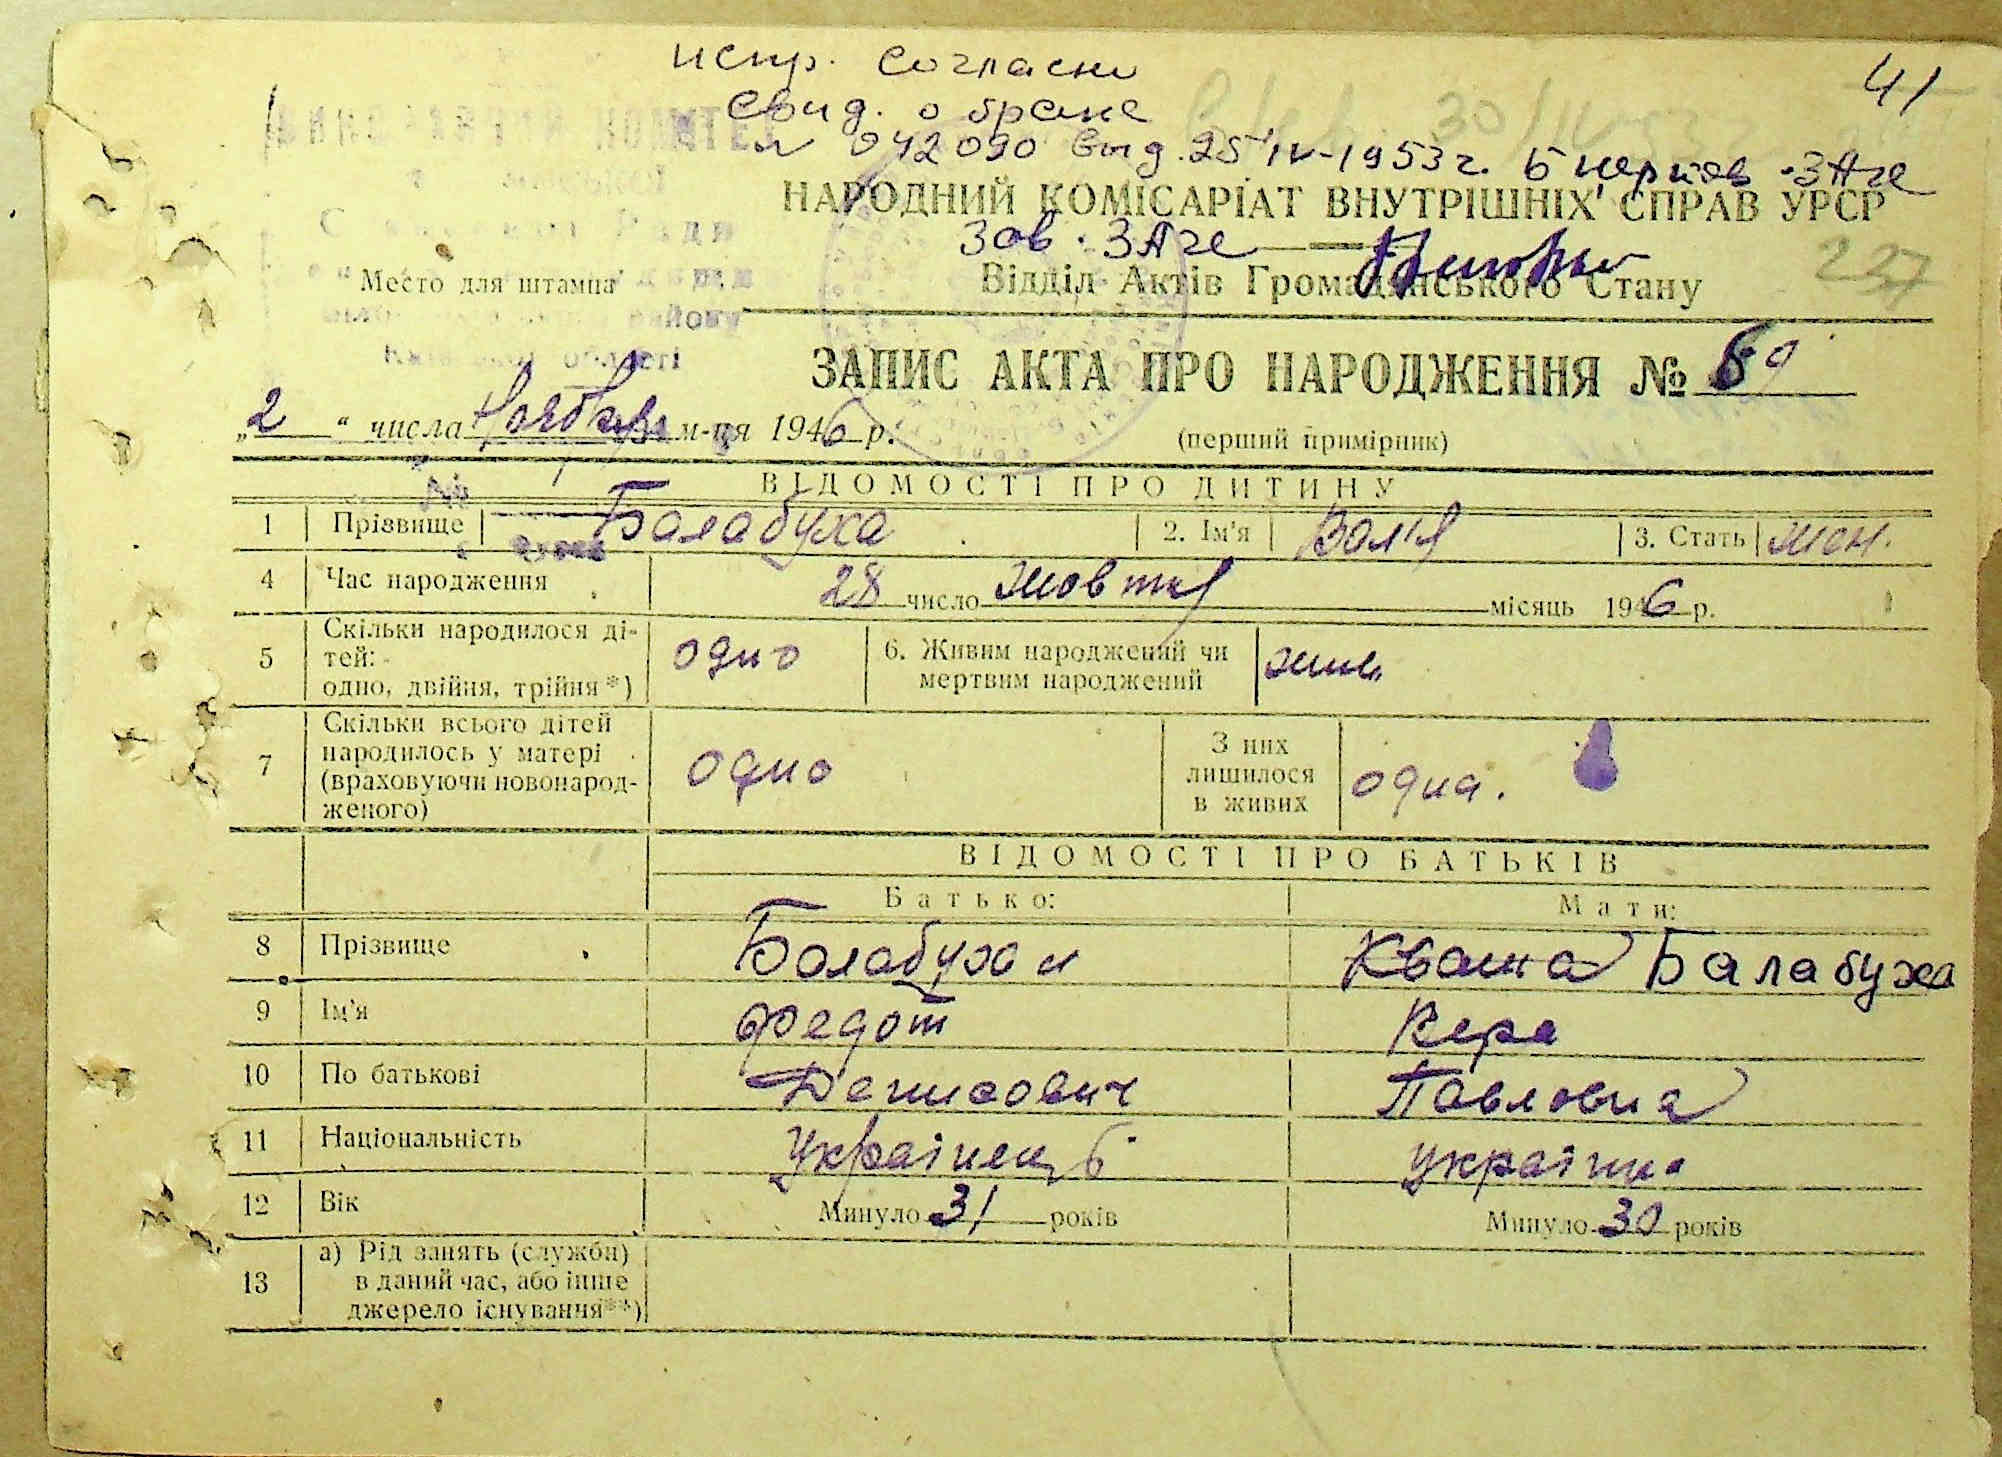 испр. согласно
41
свид. о браке
N 042090 выд. 25 IV-1953 г. Б Церков. ЗАГС
НАРОДНИЙ КОМІСАРІАТ ВНУТРІШНІХ СПРАВ УРСР
Зав. ЗАГС
237
Место для штампа
Відділ Актів Громадянського Стану
області
ЗАПИС АКТА ПРО НАРОДЖЕННЯ № 69
„2“ числа Ноября м-ця 1946 р.
(перший примірник)
ВІДОМОСТІ ПРО ДИТИНУ
1 Прізвище Балабуха 2. Ім'я Вал'я 3. Стать жен.
4 Час народження 28 число жовтня місяць 1946 р.
5 Скільки народилося ді-
тей:
одно, двійня, трійня *)
одно
6. Живим народжений чи
мертвим народжений
жив.
7 Скільки всього дітей
народилось у матері
(враховуючи новонарод-
женого)
одно
З них
лишилося
в живих
одна.
ВІДОМОСТІ ПРО БАТЬКІВ
Батько: Мати:
8 Прізвище Балабуха Кваша Балабуха
9 Ім'я Федот Вера
10 По батькові Денисович Павловна
11 Національність Українець українка
12 Вік Минуло 31 років Минуло 30 років
13 а) Рід занять (служби)
в даний час, або інше
джерело існування**)